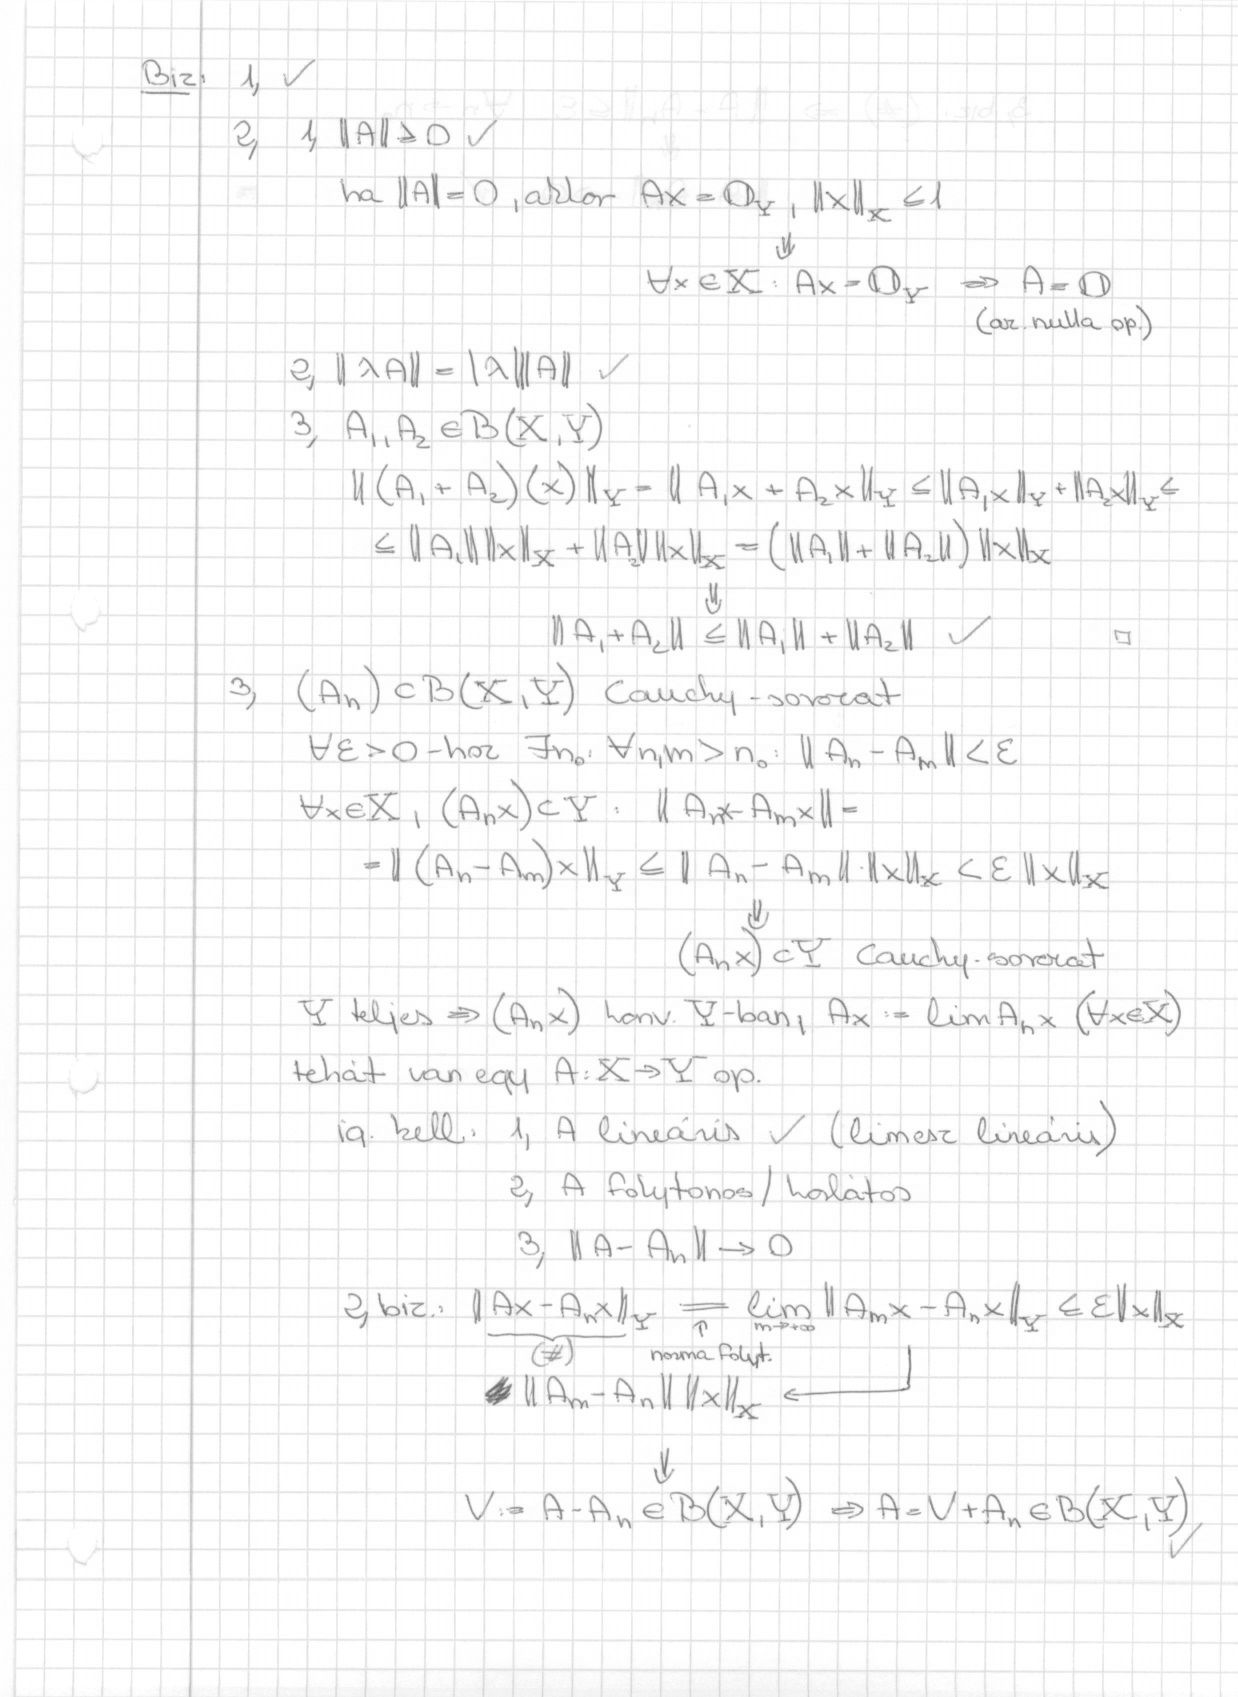 Biz: 1, ✓
2, 1, ‖A‖ ≥ 0 ✓
ha ‖A‖ = 0, akkor Ax = 𝕆_Y, ‖x‖_X ≤ 1
⇓
∀x ∈ X: Ax = 𝕆_Y ⇒ A = 𝕆
(az nulla op.)
2, ‖λA‖ = |λ|‖A‖ ✓
3, A₁, A₂ ∈ B(X, Y)
‖(A₁ + A₂)(x)‖_Y = ‖A₁x + A₂x‖_Y ≤ ‖A₁x‖_Y + ‖A₂x‖_Y ≤
≤ ‖A₁‖‖x‖_X + ‖A₂‖‖x‖_X = (‖A₁‖ + ‖A₂‖)‖x‖_X
⇓
‖A₁ + A₂‖ ≤ ‖A₁‖ + ‖A₂‖ ✓ □
3, (A_n) ⊂ B(X, Y) Cauchy-sorozat
∀ε > 0-hoz ∃n₀: ∀n,m > n₀: ‖A_n - A_m‖ < ε
∀x ∈ X, (A_n x) ⊂ Y: ‖A_n x - A_m x‖ =
= ‖(A_n - A_m)x‖_Y ≤ ‖A_n - A_m‖·‖x‖_X < ε‖x‖_X
⇓
(A_n x) ⊂ Y Cauchy-sorozat
Y teljes ⇒ (A_n x) konv. Y-ban, Ax := lim A_n x (∀x∈X)
tehát van egy A: X → Y op.
ig. kell: 1, A lineáris ✓ (limesz lineáris)
2, A folytonos / korlátos
3, ‖A - A_n‖ → 0
2, biz.: ‖Ax - A_n x‖_Y = lim_{m→+∞} ‖A_m x - A_n x‖_Y ≤ ε‖x‖_X
(#) ↑ norma folyt.
‖A_m - A_n‖ ‖x‖_X ←
⇓
V := A - A_n ∈ B(X, Y) ⇒ A = V + A_n ∈ B(X, Y) ✓